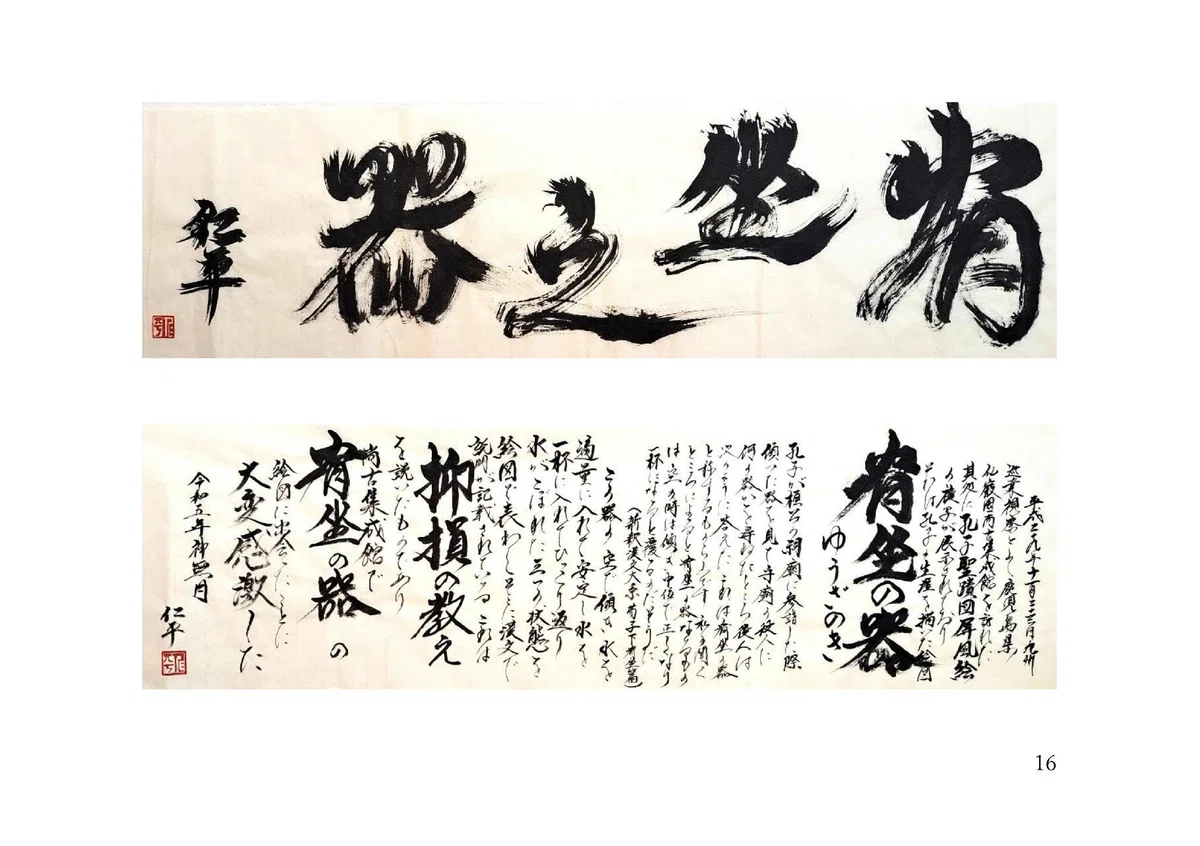 宥坐之器
仁平
平成二九年十一月二三日九州
産業視察として鹿児島県
仙巌園尚古集成館を訪れた
其処に孔子聖蹟図屏風絵
の様子が展示されており
それは孔子の生涯を描いた絵図
宥坐の器
ゆうざのき
孔子が桓公の祠廟に参詣した際
傾いた器を見て寺廟の役人に
何の器かと尋ねたところ役人は
次のように答えた これは宥坐の器
と称するものらしいです 私の聞く
ところによると宥坐の器なるもの
は空の時は傾き中位で正しくなり
一杯になると覆るのだそうだ
(新釈漢文大系 荀子下宥坐篇)
この器の空で傾き水を
適量に入れて安定し水を
一杯に入れてひっくり返り
水がこぼれた三つの状態を
絵図で表わしそこに漢文で
説明が記載されている これは
抑損の教え
を説いたものであり
尚古集成館で
宥坐の器の
絵図に出会ったことに
大変感激した
令和五年神無月
仁平
16